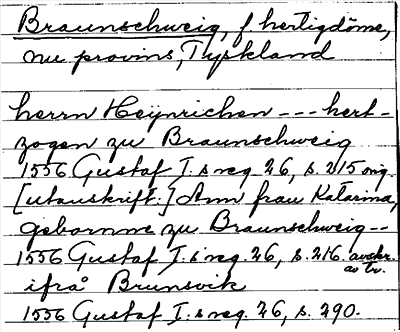 Braunschweig, f hertigdöme,
nu provins, Tyskland
herrn Heÿnrichen --- hert-
zogen zu Braunschweig
1556 Gustaf I:s reg. 26, s. 215 orig.
[utanskrift:] Ann frau Katarina,
gebornne zu Braunschweig--
1556 Gustaf I:s reg. 26, s. 216. avskr.
av tr.
ifrå Brunsvik
1556 Gustaf I:s reg. 26, s. 290.